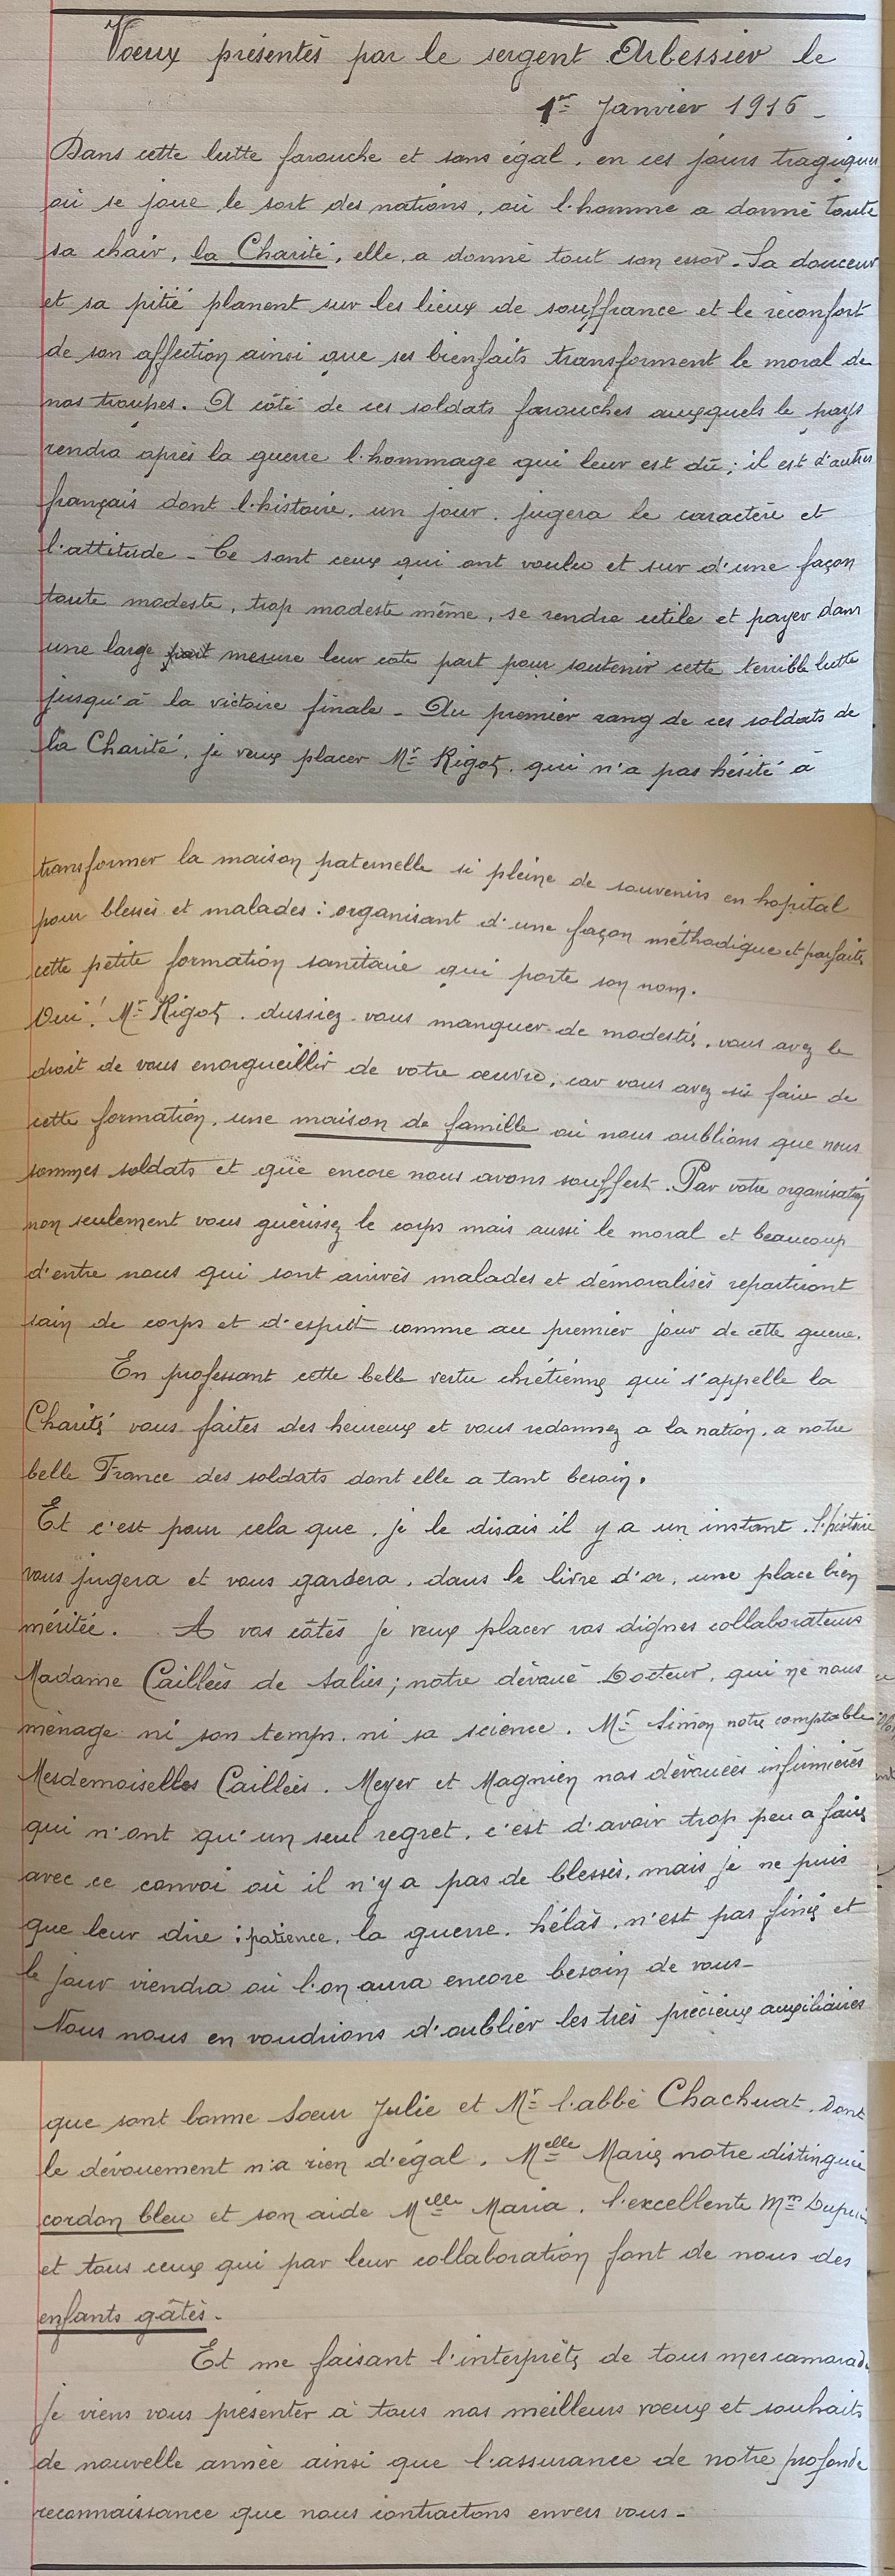 Vœux présentés par le sergent Arbessier le
1er Janvier 1916 -
Dans cette lutte farouche et sans égal, en ces jours tragiques
où se joue le sort des nations, où l'homme a donné toute
sa chair, la Charité, elle, a donné tout son essor. Sa douceur
et sa pitié planent sur les lieux de souffrance et le réconfort
de son affection ainsi que ses bienfaits transforment le moral de
nos troupes. A côté de ces soldats farouches auxquels le pays
rendra après la guerre l'hommage qui leur est dû ; il est d'autres
français dont l'histoire, un jour, jugera le caractère et
l'attitude - Ce sont ceux qui ont voulu et sur d'une façon
toute modeste, trop modeste même, se rendre utile et payer dans
une large part mesure leur cote part pour soutenir cette terrible lutte
jusqu'à la victoire finale - Au premier rang de ces soldats de
la Charité, je veux placer Mr Rigot, qui n'a pas hésité à
transformer la maison paternelle si pleine de souvenirs en hopital
pour blessés et malades : organisant d'une façon méthodique et parfaite
cette petite formation sanitaire qui porte son nom.
Oui ! Mr Rigot, dussiez-vous manquer de modestie, vous avez le
droit de vous enorgueillir de votre œuvre, car vous avez su faire de
cette formation, une maison de famille où nous oublions que nous
sommes soldats et que encore nous avons souffert. Par votre organisation
non seulement vous guérissez le corps mais aussi le moral et beaucoup
d'entre nous qui sont arrivés malades et démoralisés repartiront
sain de corps et d'esprit comme au premier jour de cette guerre.
En professant cette belle vertu chrétienne qui s'appelle la
Charité vous faites des heureux et vous redonnez a la nation, a notre
belle France des soldats dont elle a tant besoin.
Et c'est pour cela que, je le disais il y a un instant, l'histoire
vous jugera et vous gardera, dans le livre d'or, une place bien
méritée. A vos côtés je veux placer vos dignes collaborateurs
Madame Caillès de Salies ; notre dévoué Docteur, qui ne nous
ménage ni son temps, ni sa science. Mr Simon notre comptable
Mesdemoiselles Caillès, Meyer et Magnien nos dévouées infirmières
qui n'ont qu'un seul regret, c'est d'avoir trop peu a faire
avec ce convoi où il n'y a pas de blessés, mais je ne puis
que leur dire : patience, la guerre, hélàs, n'est pas finie et
le jour viendra où l'on aura encore besoin de vous -
Nous nous en voudrions d'oublier les très précieux auxiliaires
que sont bonne Sœur Julie et Mr l'abbé Chachuat, dont
le dévouement n'a rien d'égal, Melle Marie notre distinguée
cordon bleu et son aide Melle Maria, l'excellente Mm Dupuis
et tous ceux qui par leur collaboration font de nous des
enfants gâtés -
Et me faisant l'interprête de tous mes camarades
je viens vous présenter à tous nos meilleurs vœux et souhaits
de nouvelle année ainsi que l'assurance de notre profonde
reconnaissance que nous contractons envers vous -